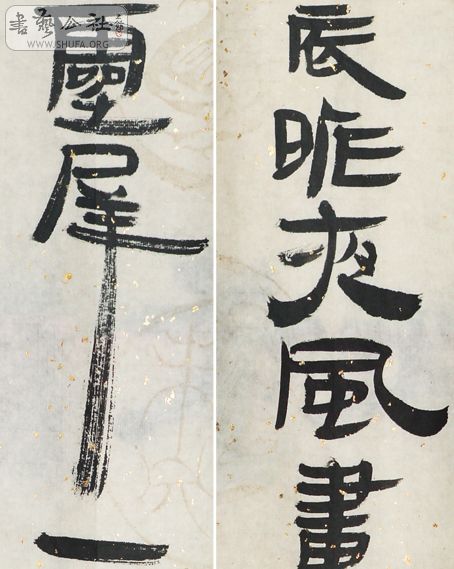 辰昨夜風畫
靈犀一
書藝公社
WWW.SHUFA.ORG